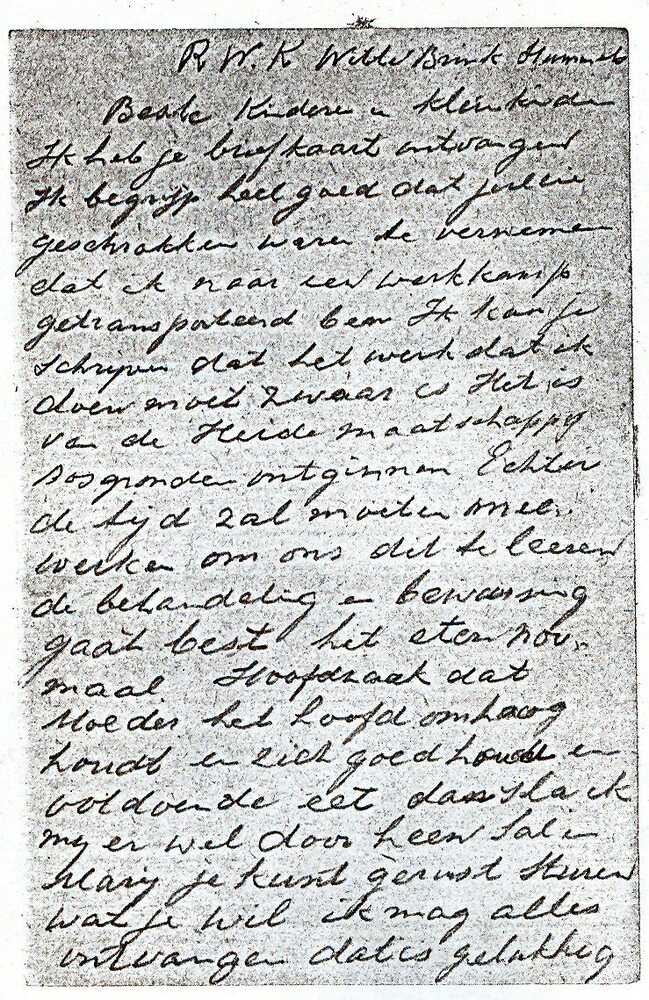 R. W. K. Witte Brink Hummelo
Beste Kinderen en kleinkinderen
Ik heb je briefkaart ontvangen
Ik begrijp heel goed dat jullie
geschrokken waren te vernemen
dat ik naar een werkkamp
getransporteerd ben Ik kan je
schrijven dat het werk dat ik
doen moet zwaar is Het is
van de Heidemaatschappy
bosgronden ontginnen Echter
de tijd zal moeten mee-
werken om ons dit te leeren
de behandeling en bewassing
gaat best het eten nor-
maal Hoofdzaak dat
Moeder het hoofd omhoog
houdt en zich goed houdt en
voldoende eet dan sla ik
my er wel door heen Sal en
Mary je kunt gerust sturen
wat je wil ik mag alles
ontvangen dat is gelukkig